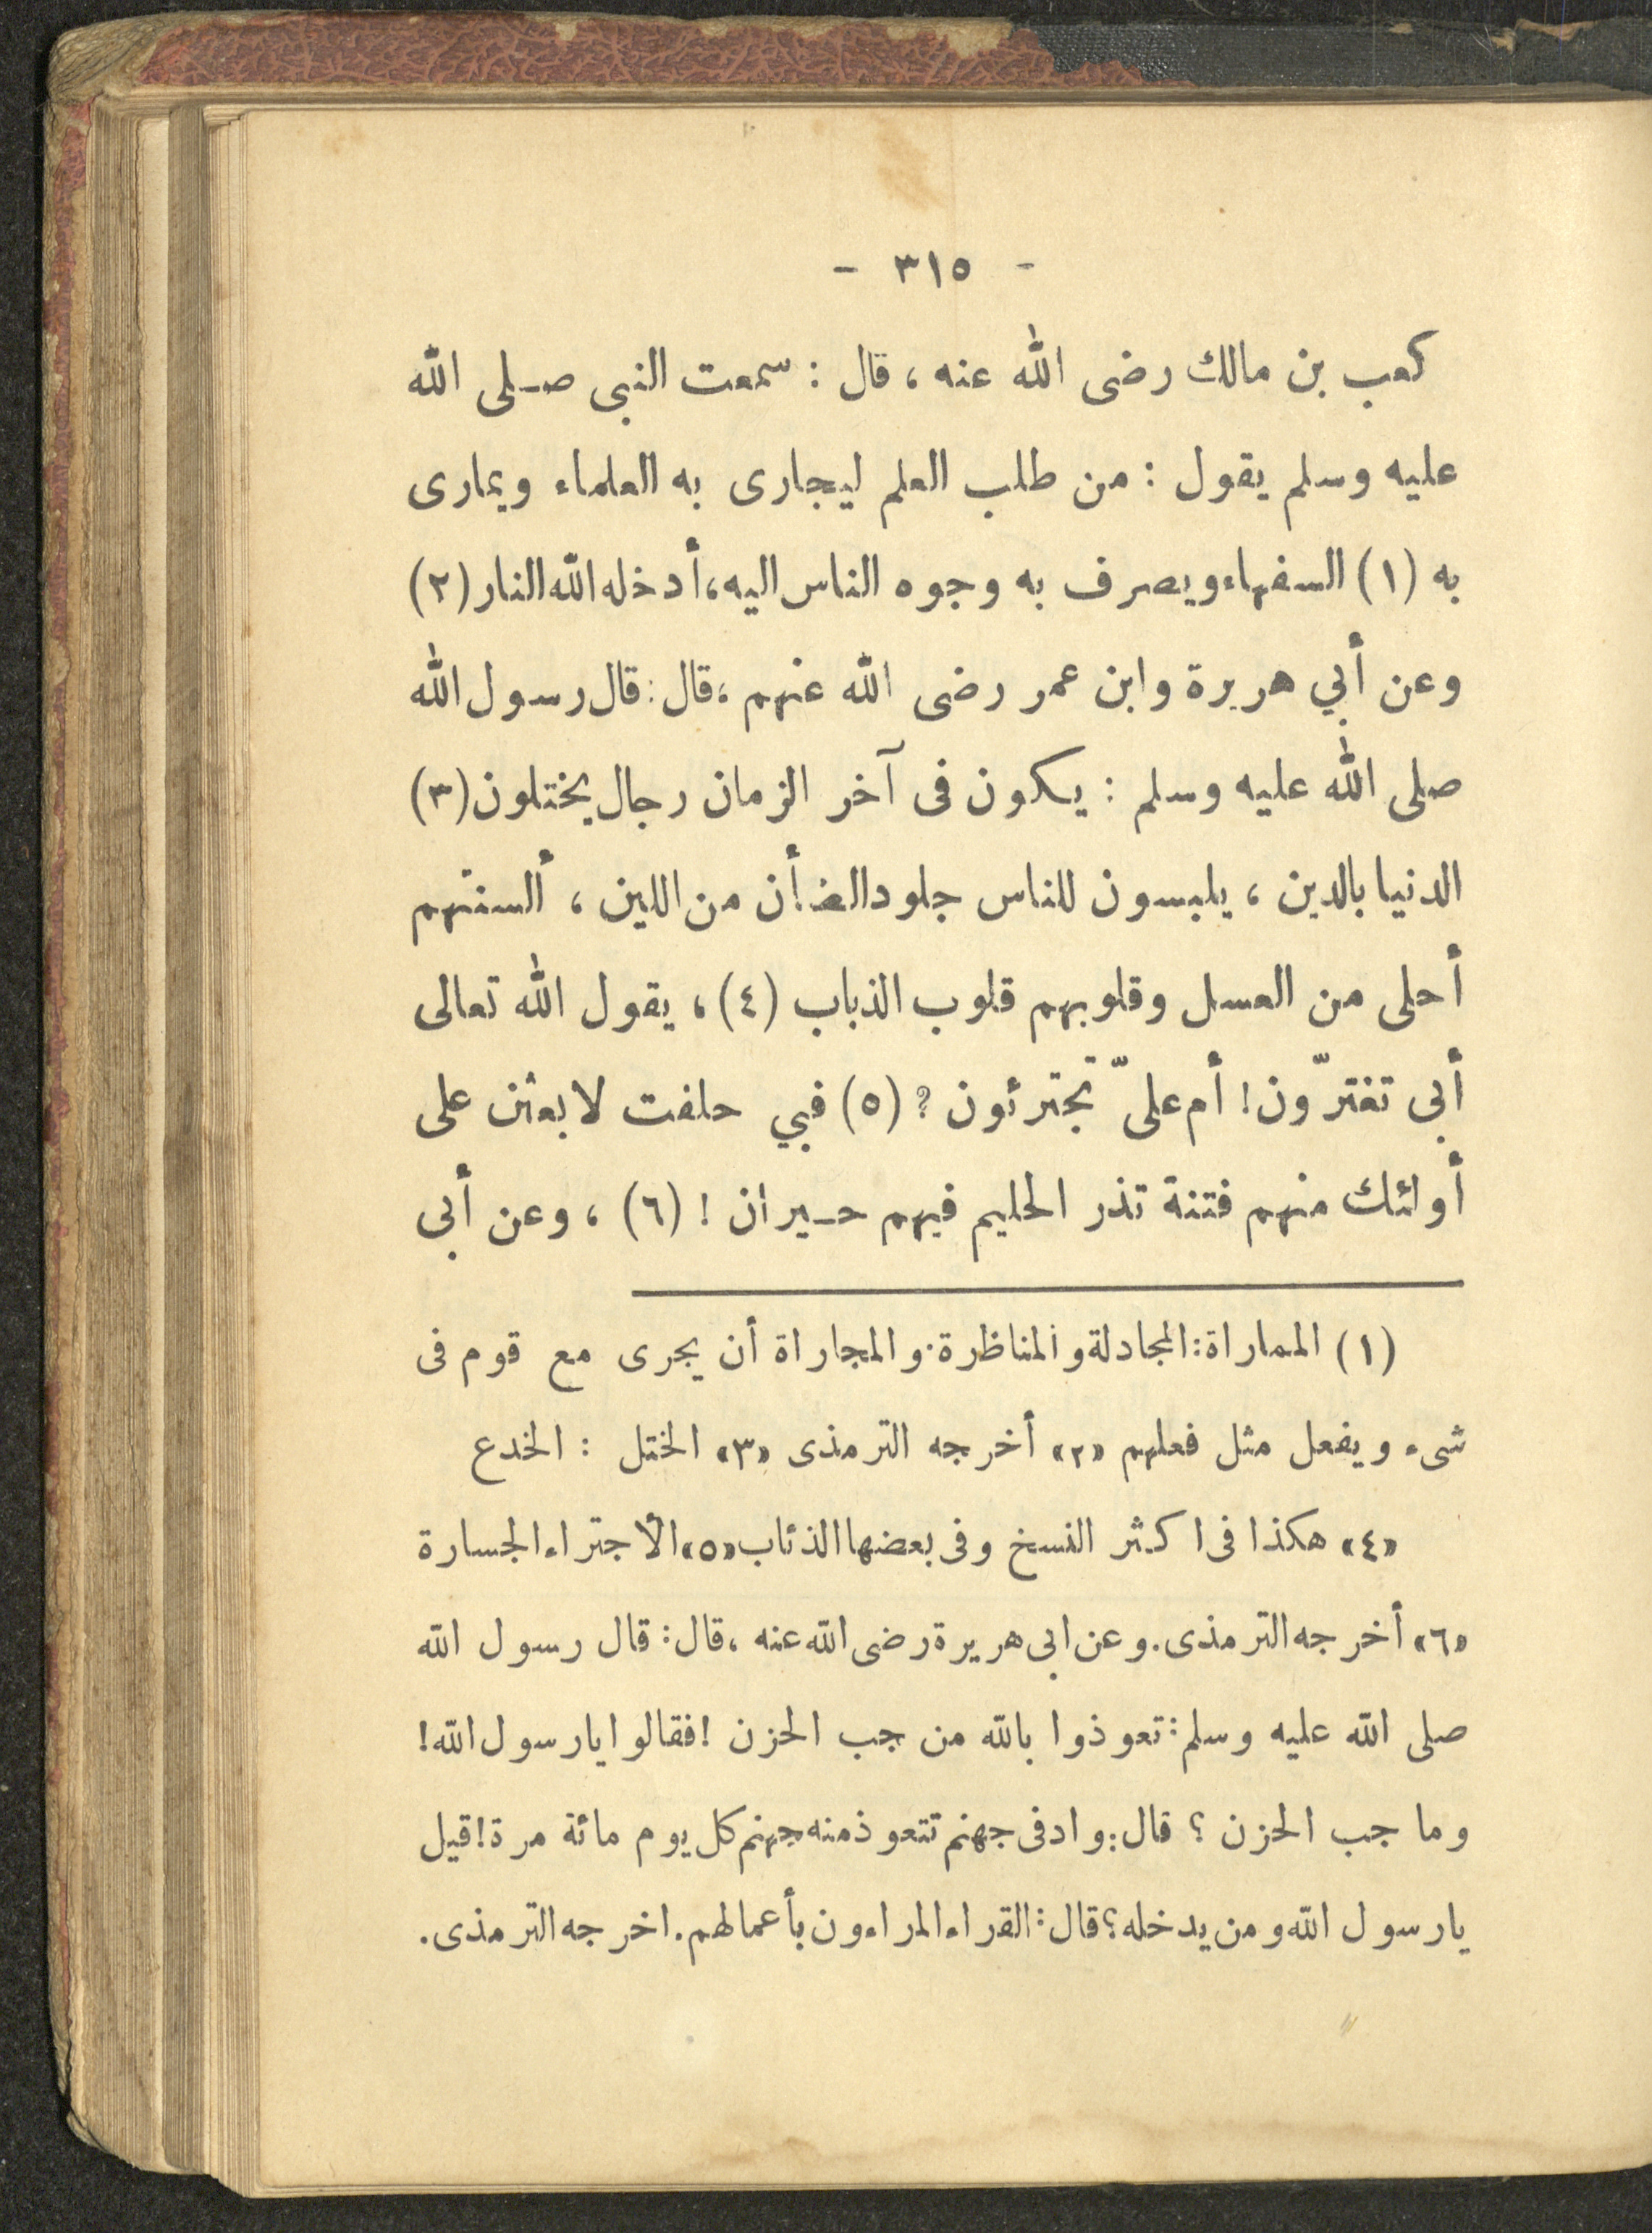 - ٣١٥ -
كعب بن مالك رضى الله عنه ، قال : سمعت النبى صلى الله
عليه وسلم يقول : من طلب العلم ليجارى به العلماء ويمارى
به (١) السفهاء ويصرف به وجوه الناس اليه، أدخله الله النار (٢)
وعن أبي هريرة وابن عمر رضى الله عنهم ، قال : قال رسول الله
صلى الله عليه وسلم : يكون فى آخر الزمان رجال يختلون (٣)
الدنيا بالدين ، يلبسون للناس جلود الضأن من اللين ، ألسنتهم
أحلى من العسل وقلوبهم قلوب الذباب (٤) ، يقول الله تعالى
أبى تغترّون! أم علىّ تجترئون ? (٥) فبي حلفت لابعثن على
أولئك منهم فتنة تذر الحليم فيهم حيران ! (٦) ، وعن أبى
(١) المماراة : المجادلة والمناظرة . والمجاراة أن يجرى مع قوم فى
شىء ويفعل مثل فعلهم «٢» أخرجه الترمذى «٣» الختل : الخدع
«٤» هكذا فى اكثر النسخ وفى بعضها الذئاب «٥» الأجتراء الجسارة
«٦» أخرجه الترمذى . وعن ابى هريرة رضى الله عنه ، قال : قال رسول الله
صلى الله عليه وسلم : تعوذوا بالله من جب الحزن ! فقالوا يارسول الله !
وما جب الحزن ؟ قال : واد فى جهنم تتعوذ منه جهنم كل يوم مائة مرة ! قيل
يارسول الله ومن يدخله ؟ قال : القراء المراءون بأعمالهم . اخرجه الترمذى .